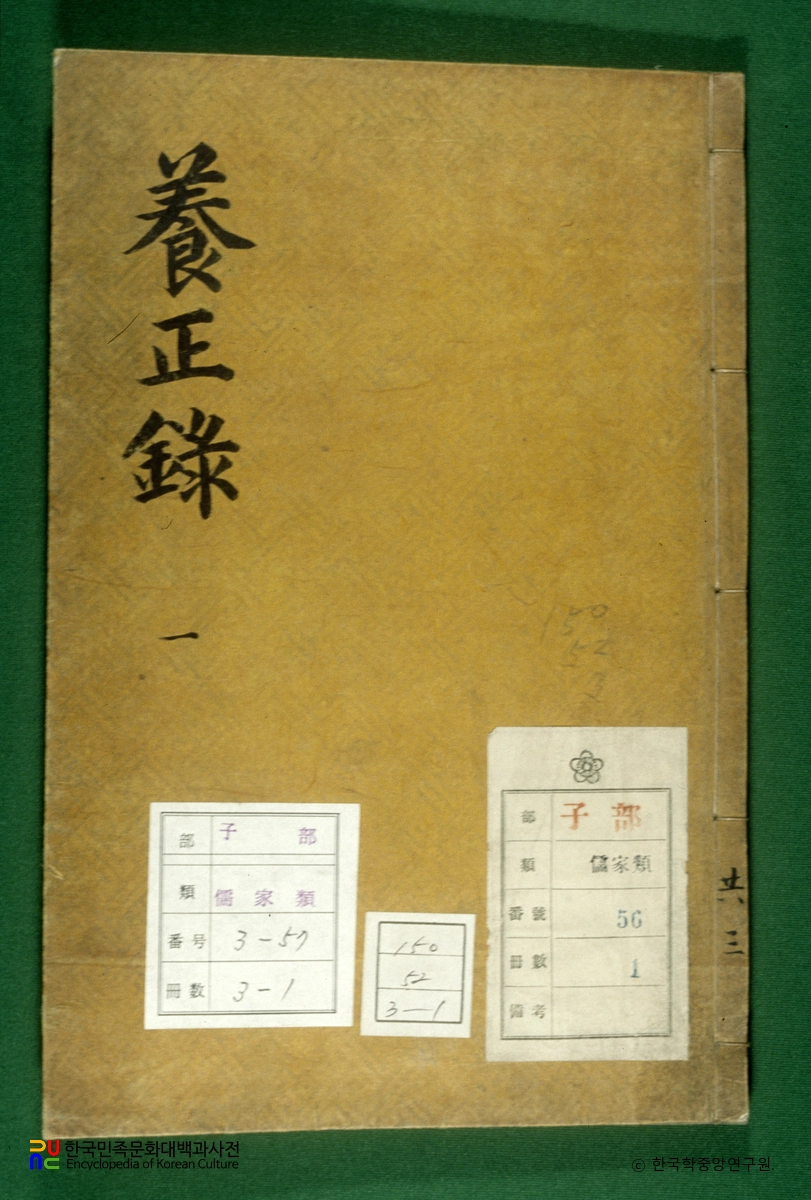 養正錄
一
共三
150
52
3
部 子部
類 儒家類
番号 3-57
冊数 3-1
150
52
3-1
部 子部
類 儒家類
番號 56
冊數 1
備考
한국민족문화대백과사전
Encyclopedia of Korean Culture
© 한국학중앙연구원